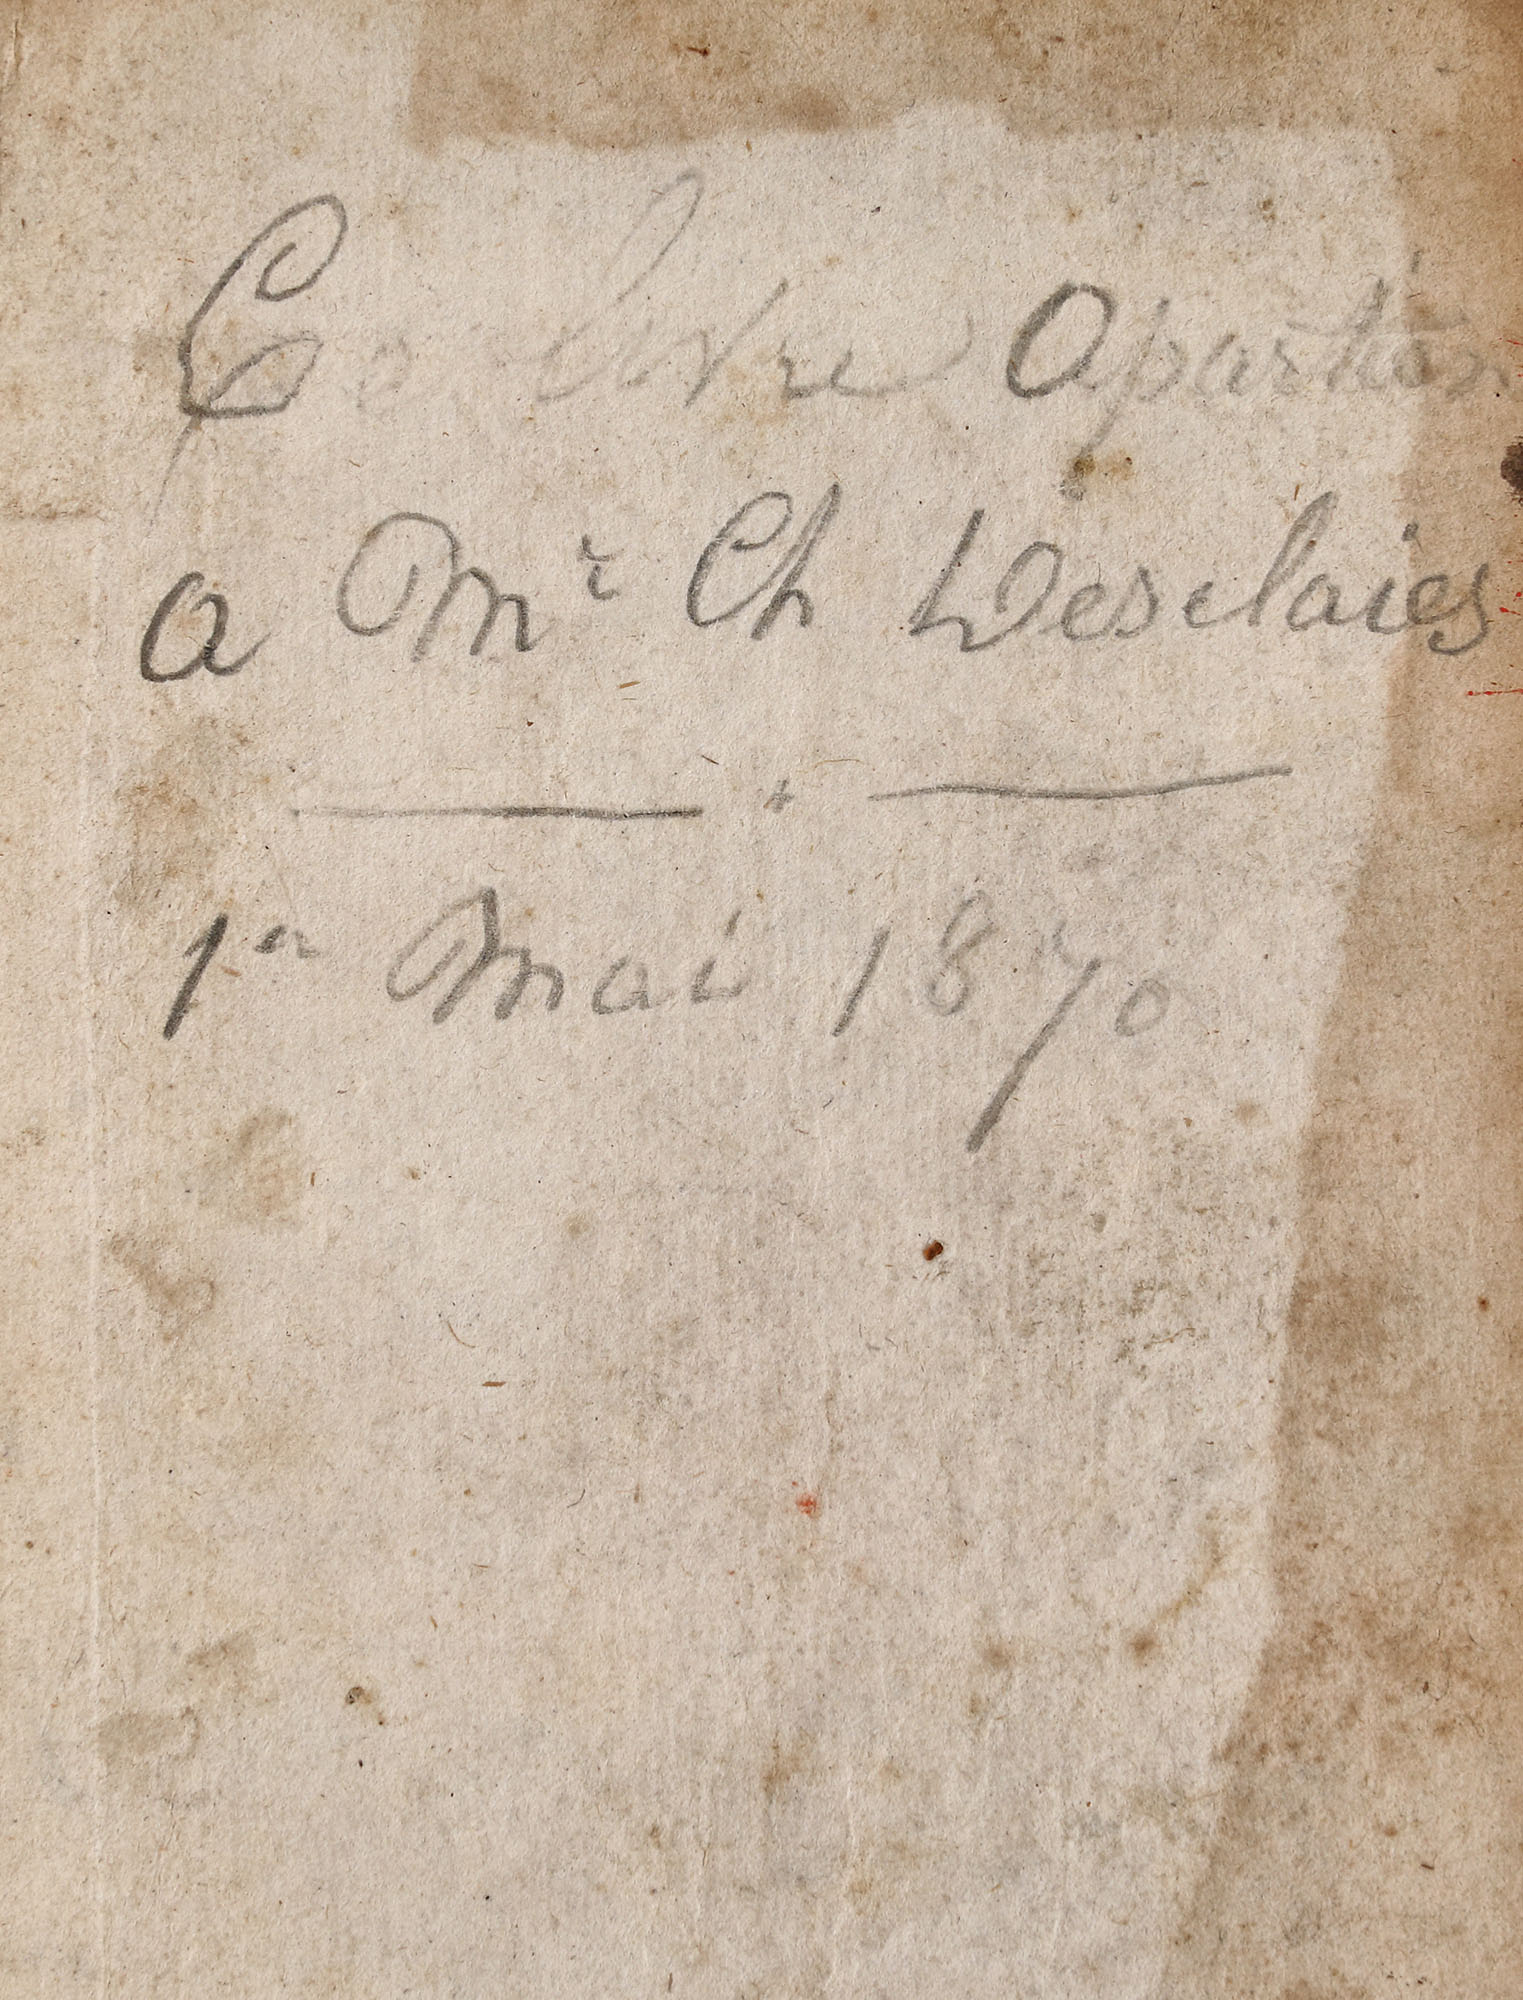 Ce livre apartien
a Mr Ch Desclaies
1er Mai 1870